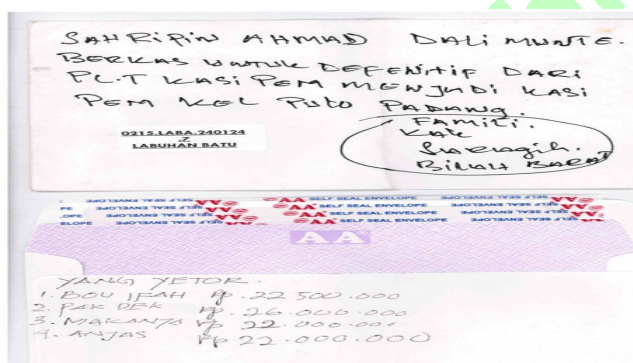 SAHRIPIN AHMAD DALIMUNTE.
BERKAS UNTUK DEFENITIF DARI
PL.T KASI PEM MENJADI KASI
PEM KEL PULO PADANG.
FAMILI.
KAK
BILAH BARAT
0215.LABA.240124
-Z
LABUHAN BATU
SELF SEAL ENVELOPE
AA SELF SEAL ENVELOPE
AA SELF SEAL ENVELOPE
AA SELF SEAL ENVELOPE
AA
YANG YETOR.
1. BOU IFAH Rp. 22.500.000
2. PAK DEK Rp. 26.000.000
3. MAKANJA Rp 22.000.000
4. ANJAS Rp 22.000.000